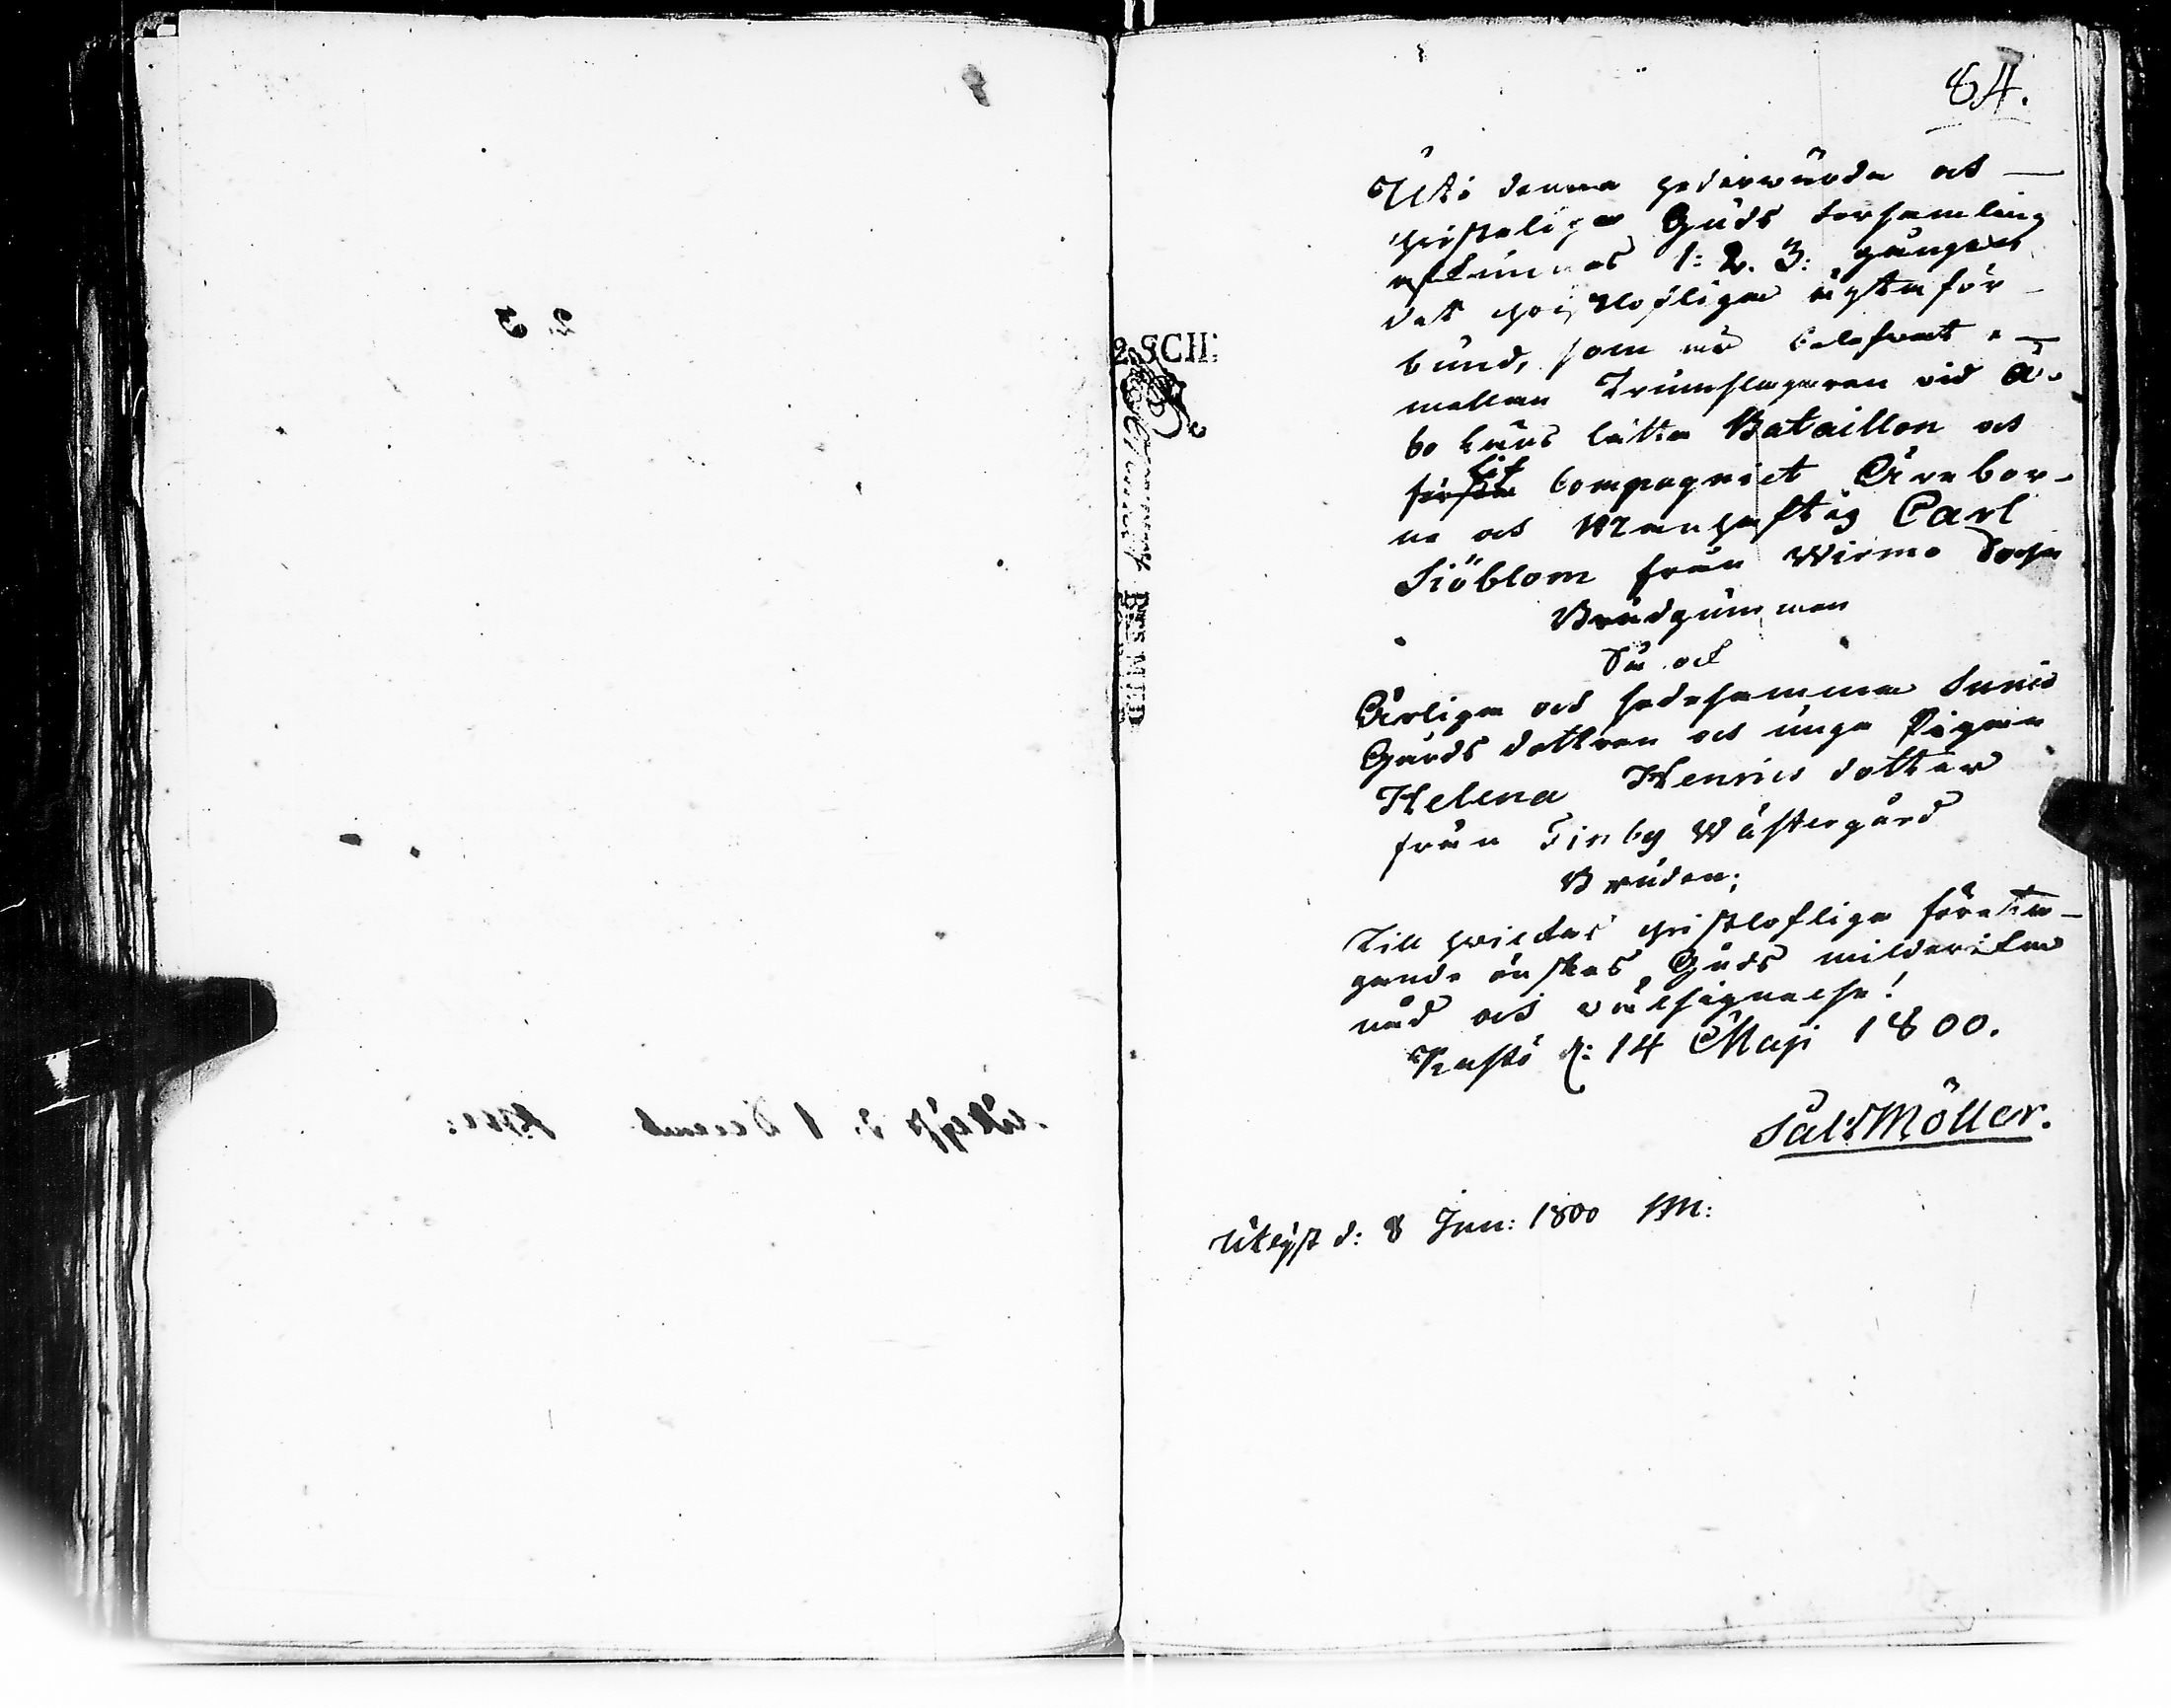 84.
Uti denna hedervärda och
christeliga Guds Församling
afkunnas 1: 2. 3: gången
det christlofliga ägtaför-
bund, som är belefvat e-
mellan Trumslagaren vid Å-
bo Läns lätta Bataillon och
första Lif Compagniet Ärebor-
ne och Manhaftig Carl
Siöblom från Wirmo Sochn
Brudgummen
Så ock
Ärliga och sedesamma
Gårds dottren och unga Pigan
Helena Henrics dotter
från Finby Wästergård
Bruden;
Till hvilkas christlofliga företa-
gande önskas Guds milderika
nåd och välsignelse!
d: 14 Maji 1800.
Sal: Möller.
Utlyst d: 8 Jun: 1800 M:
2 SCH: